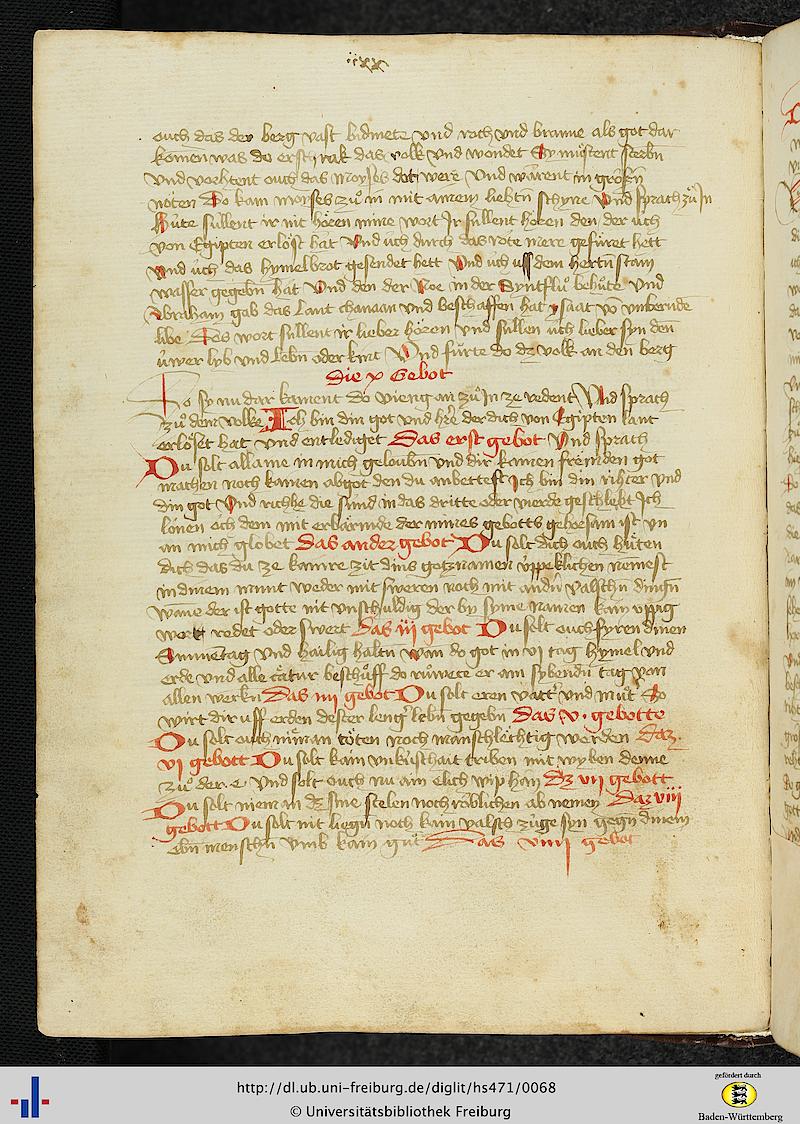 iixx
ouch das der berg vast bidmete vnd roch vnd branne als got dar
komen was do erschrak das volk vnd wondet Sy müstent sterbn
vnd vorhtent ouch das moyses dot were Vnd warent in großn
nöten Do kam moyses zuͦ in mit ainem liehtn schyne Vnd sprach zuͦ In
hüte süllent ir nit hören mine wort Ir sullent hören den der üch
von Egipten erlöst hät Vnd üch durch das rote mere gefüret hett
Vnd üch das hymelbrot gesendet hett Vnd üch uss dem hertn stain
wasser gegebn hät Vnd den der Noe in der Syntfluͦ behüte Vnd
Abraham gab das lant chanaan vnd beschaffen hat ysaac vō vnbernde
libe Des wort sullent ir lieber hören vnd süllen üch lieber syn den
üwer lyb vnd lebn oder kint Vnd fürte do dz volk an den berg
Die x Gebot
Do sy nu dar kament do vieng an zuͦ In ze redent Vnd sprach
zuͦ dem volke Ich bin din got vnd hr̄e der dich von Egipten lant
erlöset hat vnd entlediget Das erst gebot Vnd sprach
Du solt allaine in mich geloubn vnd dir kainen fremden got
machen noch kainen abgot den du anbettest Ich bin din rihter vnd
din got Vnd richhe die sünd in das dritte oder vierde geschleht Ich
lönen och dem mit erbärmde der mines gebotts gehorsam ist vn
an mich globet Das ander gebot Du solt dich ouch hüten
dich das du ze kainre zit dins gotz namen üppeklichen nemest
in dinem munt weder mit sweren noch mit andn̄ valschn dingn
wane der ist gotte nit vnschuldig der by syme namen kain üppig
wort redet oder swert Das iii gebot Du solt ouch fyren dinen
Sunnentag vnd hailig haltn wan do got in vi tag hymel vnd
erde vnd alle c̄atur beschuͦff do ruͦwete er am sybendn tag von
allen werkn Das iiii gebot Du solt eren vatt̄ vnd muͦt̄ So
wirt dir uff erden dester lenḡ lebn gegebn Das v. gebotte
Du solt ouch nieman töten noch manschlehtig werden Daz
vi gebott Du solt kain vnküschait triben mit wyben denne
zuͦ der .e. Vnd solt ouch nu ain elich wip han Dz vii gebott
Du solt nieman dz sine stelen noch röblichen ab nemen Daz viii
gebott Du solt nit liegn noch kain valsch züge syn gegn dinem
ebn menschn vmb kain guͦt Das viiii gebot
http://dl.ub.uni-freiburg.de/diglit/hs471/0068
© Universitätsbibliothek Freiburg
gefördert durch
Baden-Württemberg